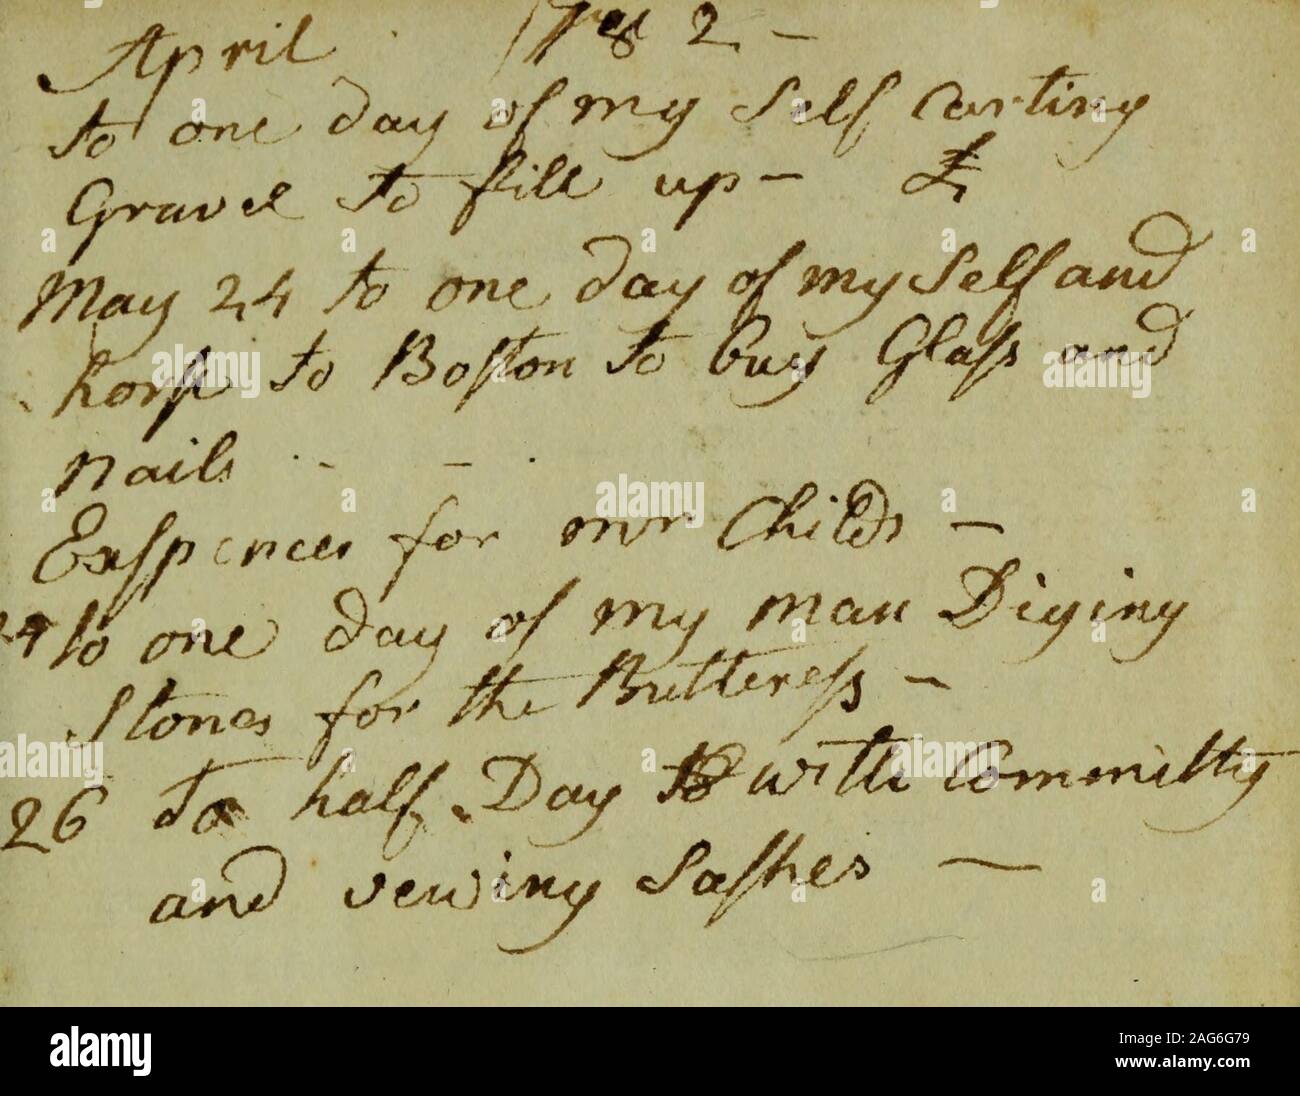 April 2 –
to one day of my Self Carting
Gravel to fill up – £
May 24 to one day of my Self and
horse to Boston to buy Glass and
nails . - – .
Exspences for mr Childs –
24 to one day of my man Diging
Stones for the Butteress –
26 To half Day to with Committy
and vewing Sashes –
alamy
Image ID: 2AG6G79
www.alamy.com